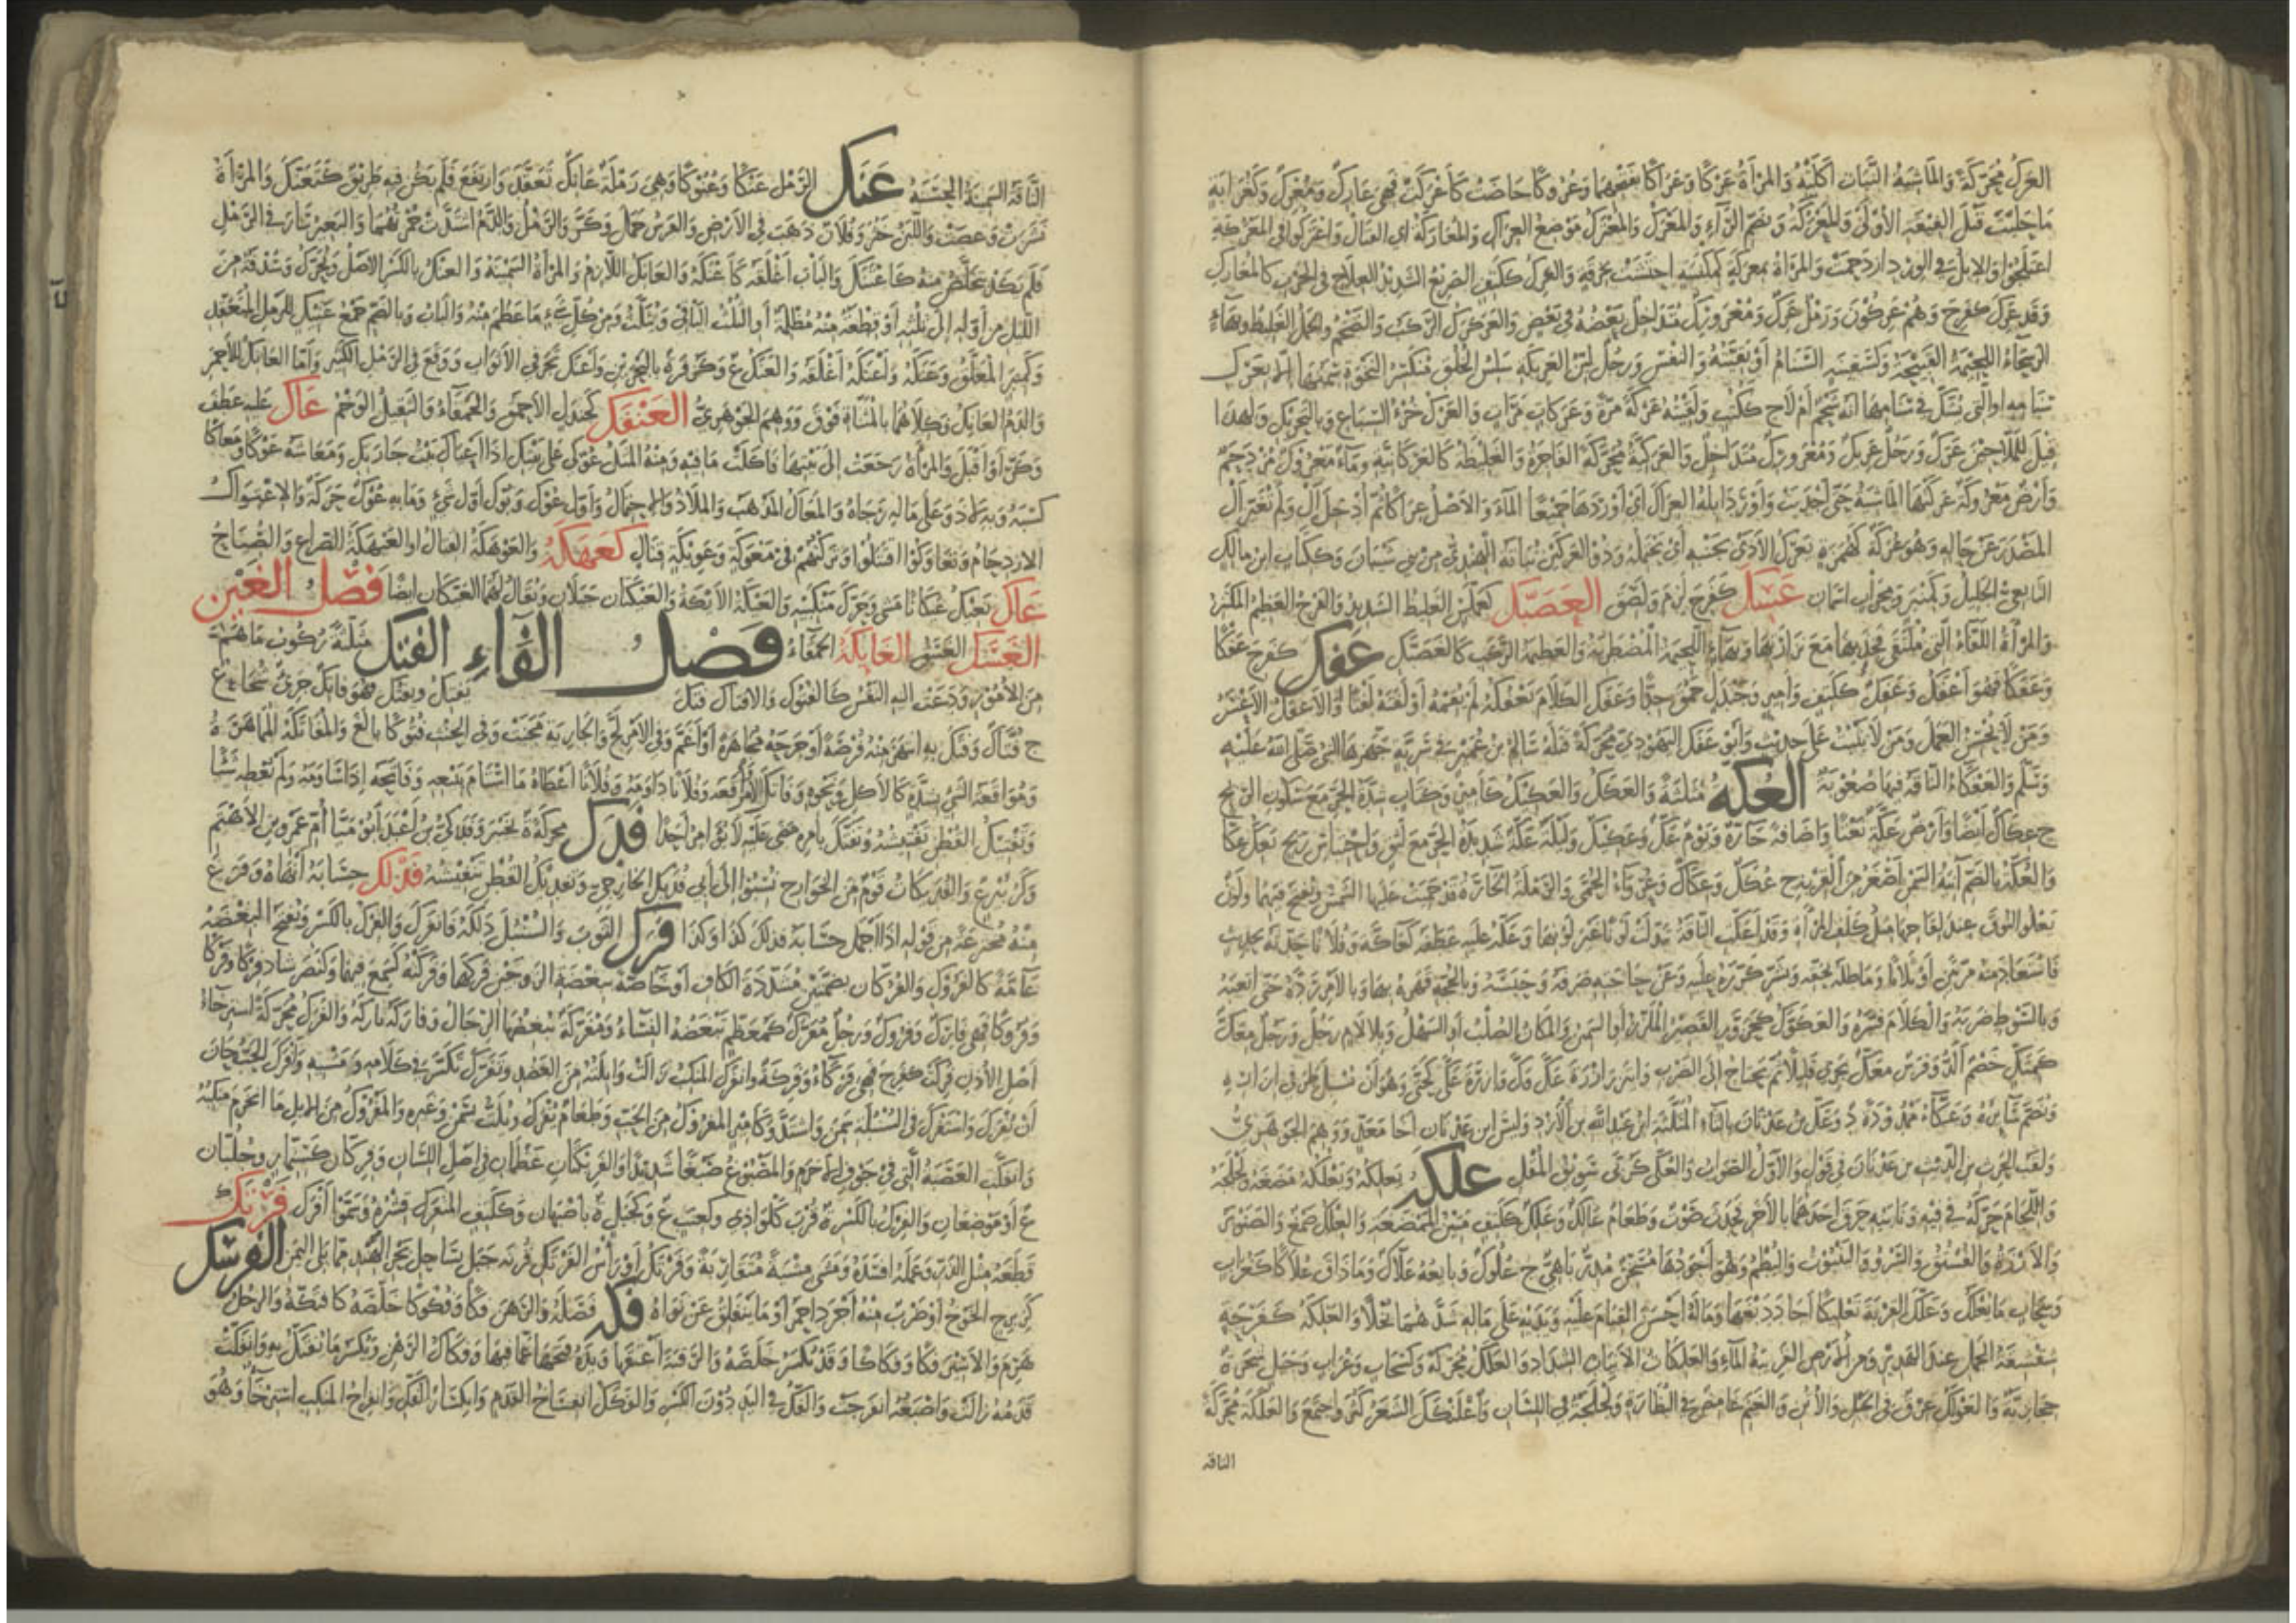 العرك محركة والماشية النبات أكلته والمرأة عركا وعراكا بفتحهما وعروكا حاضت كأعركت فهي عارك ومعرك وكغرابة
ما حلبت قبل الفيقة الأولى والمعركة وتضم الراء والمعرك والمعترك موضع العراك والمعاركة أي القتال واعتركوا في المعركة
اعتلجوا والإبل في الورد ازدحمت والمرأة بمعركة كمكنسة احتشت بخرقة والعرك ككتف الصريع الشديد العلاج في الحرب كالمعارك
وقد عرك كفرح وهم عركون ورمل عرك ومعرورك متداخل بعضه في بعض والعركرك الركب الضخم والجمل الغليظ وبهاء
الرسحاء اللحيمة القبيحة وكسفينة السنام أو بقيته والنفس ورجل لين العريكة سلس الخلق منكسر النخوة
قيل للملاحين عرك ورجل عريك ومعرورك متداخل والعركية محركة الفاجرة والغليظة كالعركانية وماء معروك مزدحم
وأرض معروكة عركتها الماشية حتى أجدبت وأورد إبله العراك أي أوردها جميعا الماء والأصل عراكا ثم أدخل ال ولم تغير ال
المصدر عن حاله وهو عركة كهمزة يعرك الأذى بجنبه أي يحتمله وذو العركين نباتة الهندي من بني شيبان وككتاب ابن مالك
التابعي الجليل وكمنبر ومحراب اسمان عسك كفرح لزم ولصق العضنك كعملس الغليط الشديد والفرج العظيم المكتنز
والمرأة اللفاء التي ملتقى فخذيها مع ترارتها وبهاء اللحيمة المضطربة والعظيمة الركب كالعضنك عفك كفرح عفكا
وعفكا فهو أعفك وعفك ككتف وأمير وجندل حمق جدا وعفك الكلام يعفكه لم يقمه أو لفته لفتا والأعفك الأعسر
ومن لا يحسن العمل ومن لا يثبت على حديث وأبو عفك اليهودي محركة قتله سالم بن عمير في سرية جهزها النبي صلى الله عليه
وسلم والعفكاء الناقة فيها صعوبة العكة مثلثة والعكك والعكيك كأمير وكتاب شدة الحر مع سكون الريح
ج عكاك أيضا وأرض عكة نعتا وإضافة حارة ويوم عك وعكيك وليلة عكة شديدة الحر مع لثق واحتباس ريح
والعكة بالضم آنية السمن أصغر من القربة ج عكك وعكاك وعرواء الحمى والرملة الحارة قد حميت عليها الشمس ويفتح فيهما ولون
يعلو النوق عند لقاحها مثل كلف المرأة وقد أعكت الناقة تبدلت لونا غير لونها وعكه عليه عطفه كعاكه وفلانا حدثه بحديث
فاستعاده منه مرتين أو ثلاثا وماطله بحقه وبشر كرره عليه وعن حاجته صرفه وحبسه وبالحجة قهره بها وبالأمر رده حتى أتعبه
وبالسوط ضربه والكلام فسره والعكوك كحزور القصير الملزز أو السمين والمكان الصلب أو السهل وبلا لام رجل ورجل معك
كمتل خصم ألد وفرس معك يجري قليلا ثم يحتاج إلى الضرب وائتزر إزرة عك وك وإزرة عكى كحتى وهو أن يسبل طرفي إزاره
ويضم سائره وعكاء ممدودة د وعك بن عدنان بالثاء المثلثة ابن عبد الله بن الأزد وليس ابن عدنان أخا معد ووهم الجوهري
ولقب الحرث بن الديث بن عدنان في قول والأول الصواب والعكى كربى سويق المقل علكه يعلكه ويعلكه مضغه ولجلجه
واللجام حركه في فيه ونابيه حرق أحدهما بالآخر فحدث صوت وطعام عالك وعلك ككتف متين الممضغة والعلك صمغ والصنوبر
والأرزة والفستق والسرو والينبوت والبطم وهو أجودها مسخن مدر باهي ج علوك وبائعه علاك وما ذاق علاكا كغراب
وسحاب ما يعلك وعلك القربة تعليكا أجاد دبغها وماله أحسن القيام عليه ويديه على ماله شدهما بخلا والعلكة كفرحة
شقشقة الجمل عند الهدير ومن الأرض القريبة الماء والعلكات الأنياب الشداد والعلك محركة وكسحاب وغراب وجبل شجرة
حجازية والعولك عرق في الخيل والأتن والغنم غامض في البظارة ولجلجة في اللسان واعلنكك الشعر كثر واجتمع والعلكة محركة
الناقة
الناقة السمينة الحسنة عنك الرمل عنكا وعنوكا وهي رملة عانك تعقد وارتفع فلم يكن فيه طريق كتعنك والمرأة
نشزت وعصت واللبن خثر وفلان ذهب في الأرض والفرس حمل وكر والرمل والدم اشتدت حمرتهما والبعير سار في الرمل
فلم يكد يتخلص منه كاعتنك والباب أغلقه كأعنكه والعانك اللازم والمرأة السمينة والعنك بالكسر الأصل ويحرك وسدفة من
الليل من أوله إلى ثلثه أو قطعة منه مظلمة أو الثلث الباقي ويثلث ومن كل شيء ما عظم منه والباب وبالضم جمع عنيك للرمل المتعقد
وكمنبر المغلق وعنكه وأعنكه أغلقه والعنك ع وكزفر ة بالبحرين وأعنك تجر في الأبواب ووقع في الرمل الكثير وأما العانك للأحمر
والدم العانك وكلاهما بالمثناة فوق ووهم الجوهري العنفك كجندل الأحمق والحمقاء والثقيل الوخم عاك عليه عطف
وكر أو أقبل والمرأة رجعت إلى بيتها فأكلت ما فيه ومنه المثل عوكي على بيتك إذا أعياك بيت جارتك ومعاشه عوكا ومعاكا
كسبه وبه لاذ وعلى ماله رجاه والمعاك المذهب والملاذ والاحتمال وأول عوك وبوك أول شيء وما به عوك حركة والاعتواك
الازدحام وتعاوكوا اقتتلوا وتركتهم في معوكة وعويكة قتال كعهكة والعوهكة القتال أو العيهكة الصراع والصياح
عاك يعيك عيكانا مشى وحرك منكبيه والعيكة الأيكة والعيكتان جبلان ويقال لهما العيكان أيضا فصل الغين
الغسك الغسق الغايكة الحمقاء فصل الفاء الفتك مثلثة ركوب ما هم
من الأمور ودعت إليه النفس كالفتوك والإفتاك فتك يفتك ويفتك فهو فاتك جريء شجاع
ج فتاك وفتك به انتهز منه فرصة أو جرحه مجاهرة أو أعم وفي الأمر لج والجارية مجنت وفي الخبث فتوكا بالغ والمفاتكة المماهرة
ومواقعة الشيء بشدة كالأكل ونحوه وفاتك الأمر واقعه وفلانا داومه وفلانا أعطاه ما استام ببيعه وفاتحه إذا ساومه ولم يعطه شيئا
وتفتيك القطن تفتيشه وتفتك بأمره مضى عليه لا يؤامر أحدا فدك محركة ة بخيبر وفدكي بن أعبد أبو ميا أم عمرو بن الأهتم
وكزبير ع والفديكات قوم من الخوارج نسبوا إلى أبي فديك الخارجي وتفديك القطن تنفيشه فذلك حسابه أنهاه وفرغ
منه مخترعة من قوله إذا أجمل حسابه فذلك كذا وكذا فرك الثوب والسنبل دلكه فانفرك والفرك بالكسر ويفتح البغضة
عامة كالفروك والفركان بضمتين مشددة الكاف أو خاصة ببغضة الزوجين فركها وفركته كسمع فيهما وكنصر شاذ فركا وفركا
وفروكا فهي فارك وفروك ورجل مفرك كمعظم تبغضه النساء ومفركة يبغضها الرجال وفاركه تاركه والفرك محركة استرخاء
أصل الأذن فركت كفرح فهي فركاء وفركة وانفرك المنكب زالت وابلته من العضد وتفرك تكسر في كلامه ومشيه وأفرك الحب حان
أن يفرك واستفرك في السنبلة سمن واشتد وكأمير المفروك من الحب وطعام يفرك ويلت بسمن وغيره والمفروك من الإبل ما انخرم منكبه
وانفكت العصبة التي في جوف الأخرم والمصبوغ صبغا شديدا والفريكتان عظمان في أصل اللسان وفركان كسنمار وجلبان
ع أو موضعان والفرك بالكسر ة قرب كلواذى وكعتب ع وكجبل ة بأصبهان وككتف المتفرك قشره وسموا أفرك فرتك
قطعه مثل الذر وعمله أفسده ومشى مشية متقاربة وفرتك أو رأس الفرتك قرنة جبل بساحل بحر الهند مما يلي اليمن الفرسك
كزبرج الخوخ أو ضرب منه أجرد أحمر أو ما ينفلق عن نواه فكه فصله والرهن فكا وفكوكا خلصه كافتكه والرجل
هرم والأسير فكا وفكاكا وقد يكسر خلصه والرقبة أعتقها ويده فتحها عما فيها وفكاك الرهن ويكسر ما يفتك به وانفكت
قدمه زالت وإصبعه انفرجت والفك في اليد دون الكسر والفكك انفساخ القدم وانكسار الفك وانفراج المنكب استرخاء وهو